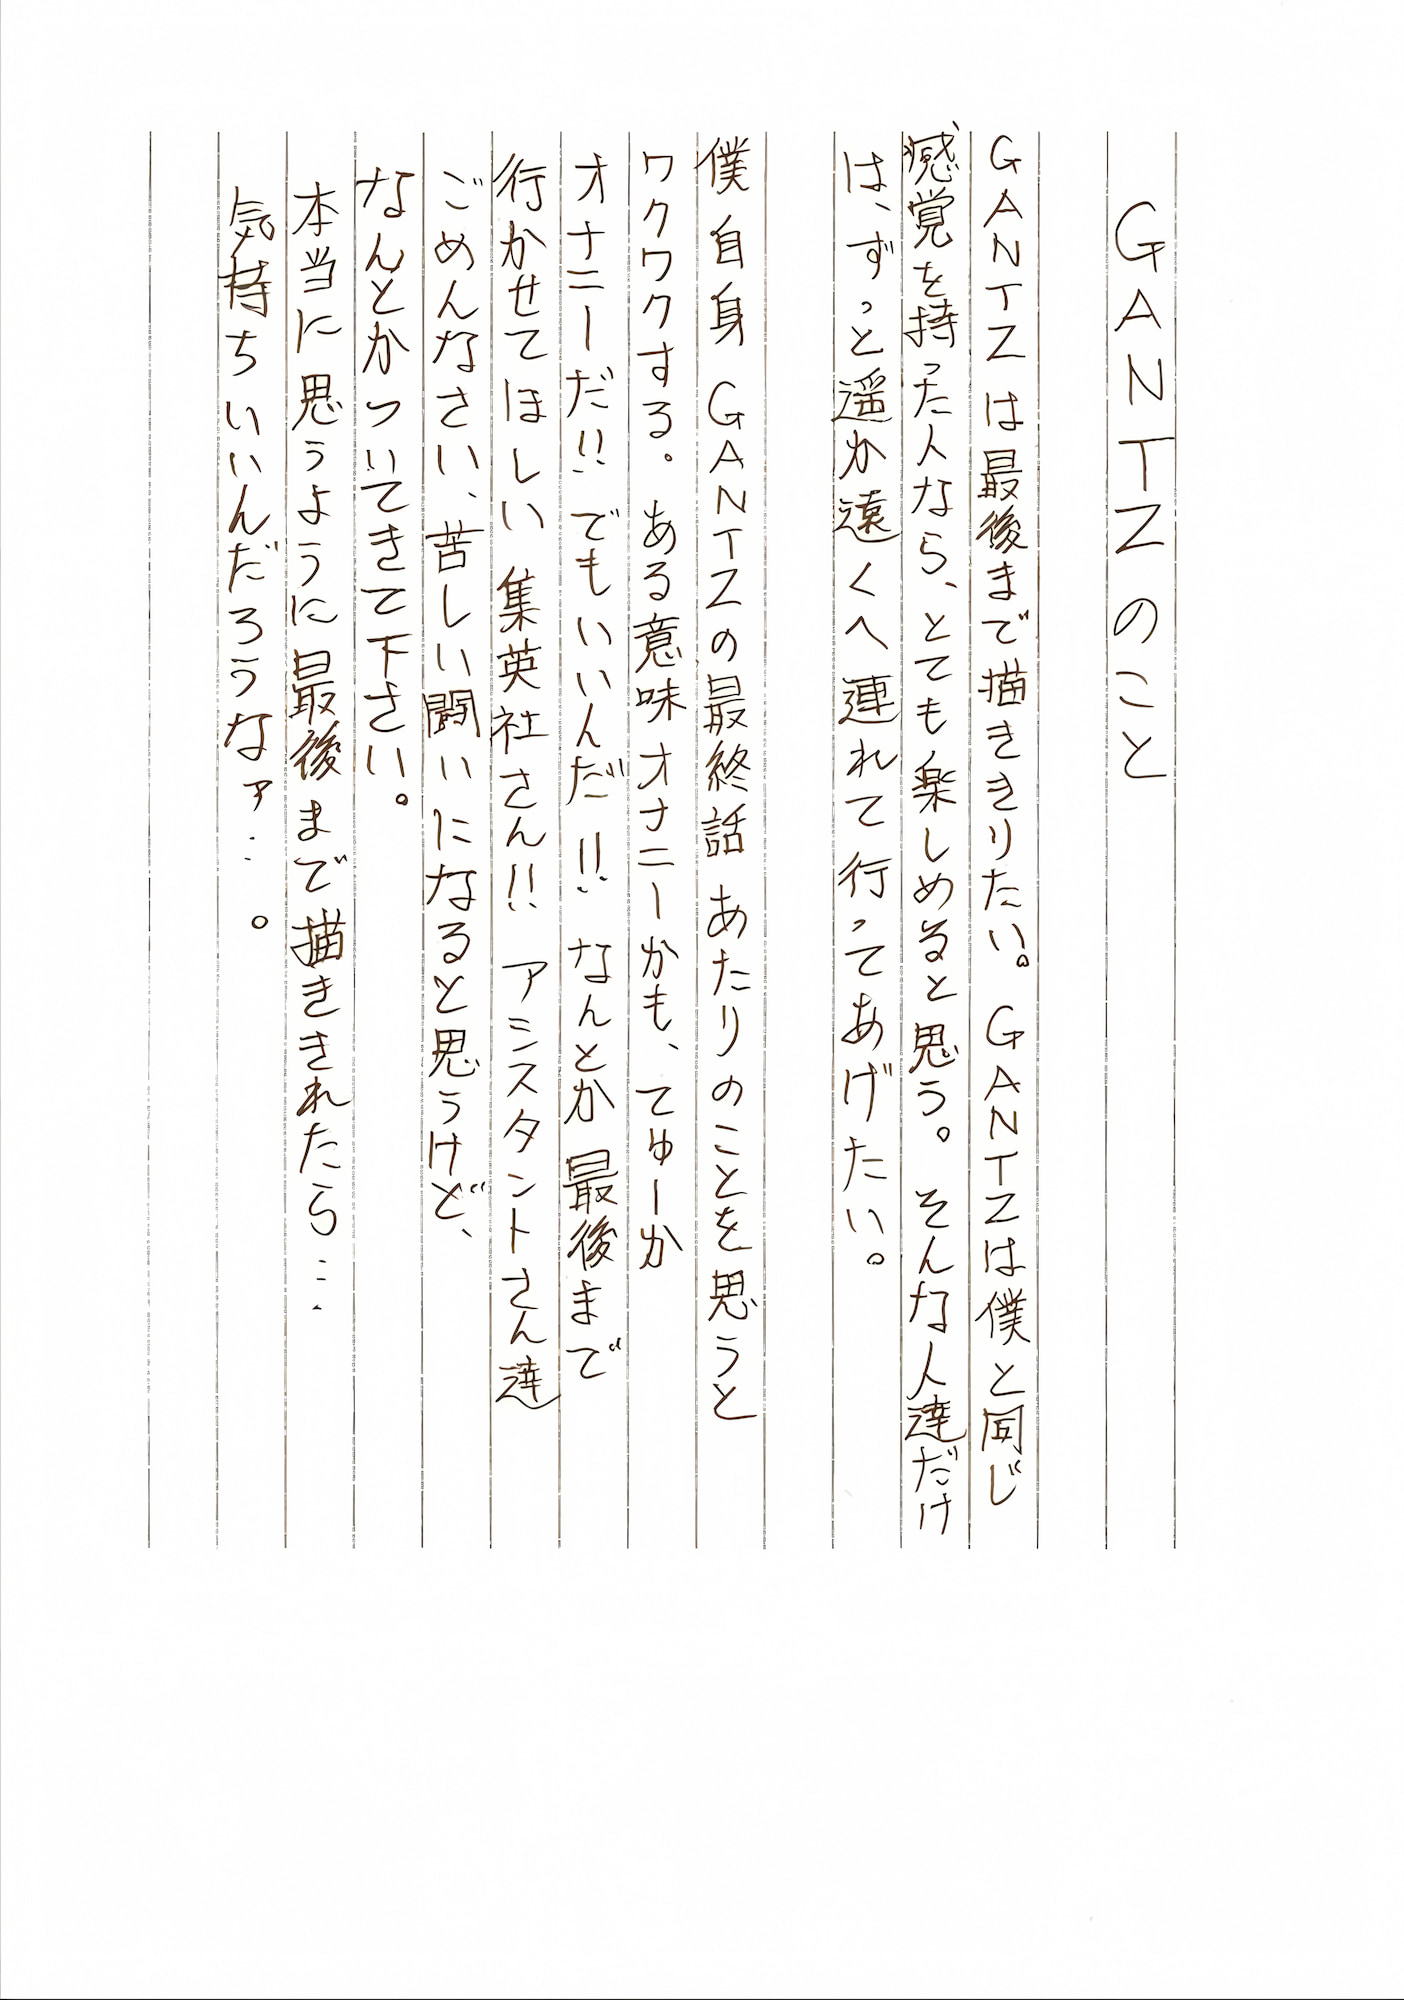 GANTZのこと
GANTZは最後まで描ききりたい。GANTZは僕と同じ
感覚を持った人なら、とても楽しめると思う。そんな人達だけ
は、ずっと遥か遠くへ連れて行ってあげたい。
僕自身 GANTZの最終話あたりのことを思うと
ワクワクする。ある意味オナニーかも、てゆーか
オナニーだ!!でもいいんだ!!なんとか最後まで
行かせてほしい 集英社さん!!アシスタントさん達
ごめんなさい、苦しい闘いになると思うけど、
なんとかついてきて下さい。
本当に思うように最後まで描ききれたら…
気持ちいいんだろうなァ…。